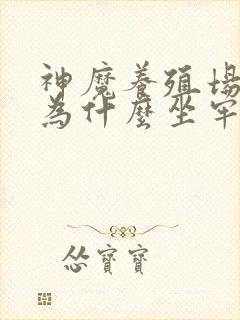 神魔養殖場
為什麼坐牢
慫寶寶